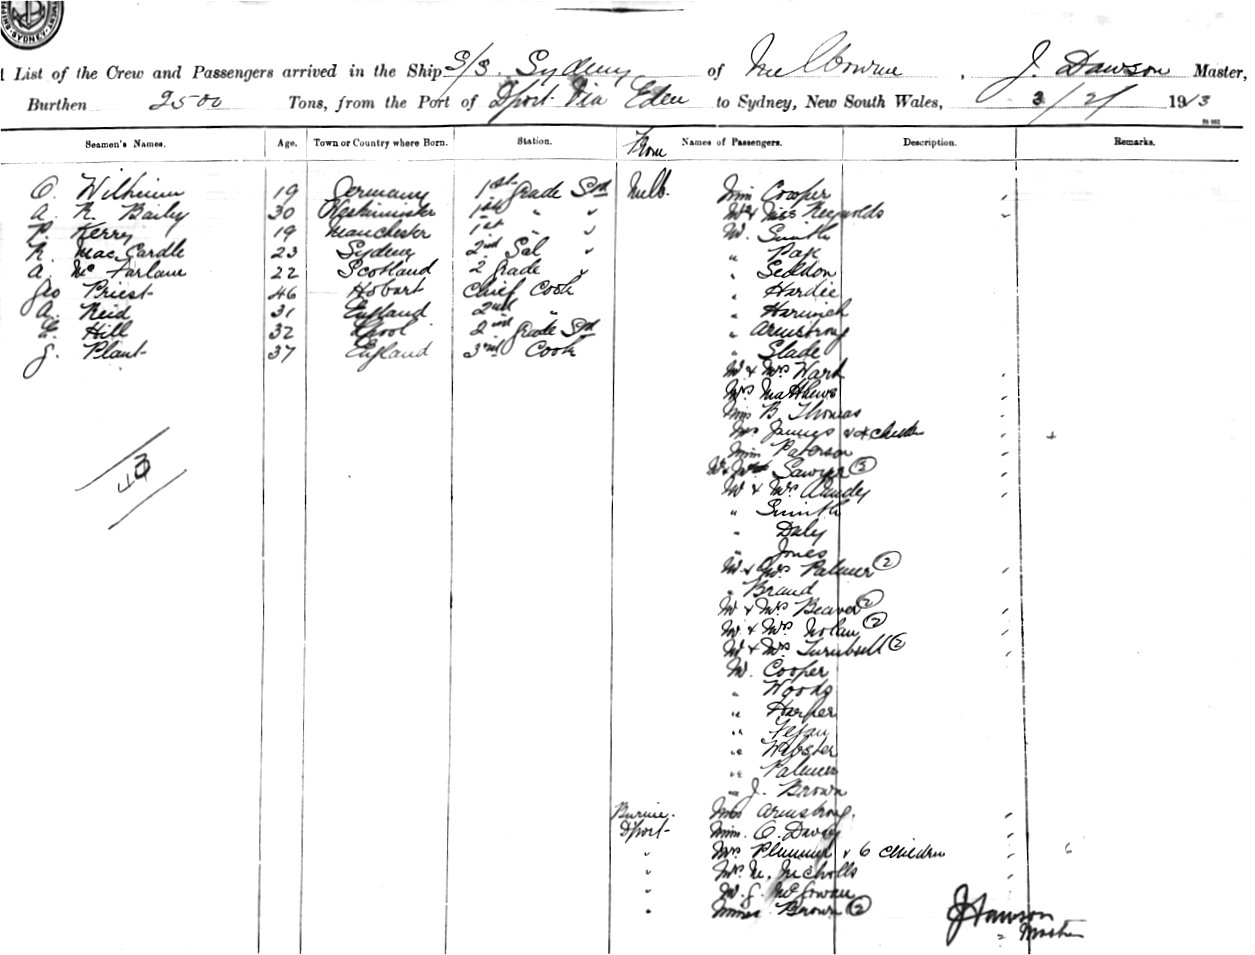 SYDNEY
List of the Crew and Passengers arrived in the Ship S/S. Sydney of Melbourne, J. Dawson Master,
Burthen 2500 Tons, from the Port of Dport Via Eden to Sydney, New South Wales, 3/2/ 1913
Seamen's Names. Age. Town or Country where Born. Station. From Names of Passengers. Description. Remarks.
O. Wilhimm 19 Germany 1st Grade Std Melb. Miss Cooper
A. R. Baily 30 Westminster 1st " " Mr & Miss Reynolds
P. Kerry 19 Manchester 1st " " Mr. Smith
R. Mac Cardle 23 Sydney 2nd Sal " " Page
A. Mc Farlane 22 Scotland 2 Grade " " Seddon
Geo Priest 46 Hobart Chief Cook " Hardie
A. Reid 31 England 2nd " "
E. Hill 32 Lpool 2nd Grade Std " Armstrong
J. Plant 37 England 3rd Cook " Slade
Mr & Mrs Ward
Mrs Matthews
Miss B. Thomas
Mrs &
Miss Paterson
Sawyer (3)
Mr & Mrs
" Smith
" Daly
" Jones
Mr & Mrs Palmer (2)
" Brand
Mr & Mrs Beaver (2)
Mr. & Mrs Nolan (2)
Mr & Mrs Turnbull (2)
Mr. Cooper
" Woods
" Harper
" Fegan
" Webster
" Palmer
" J. Brown
Burnie. Armstrong.
Dport Miss. O. Davey
" Mrs Plummer & 6 children 6
" Mrs M. Nicholls
" Mr. J. McGowan
" Misses Brown (2) J Dawson
Master